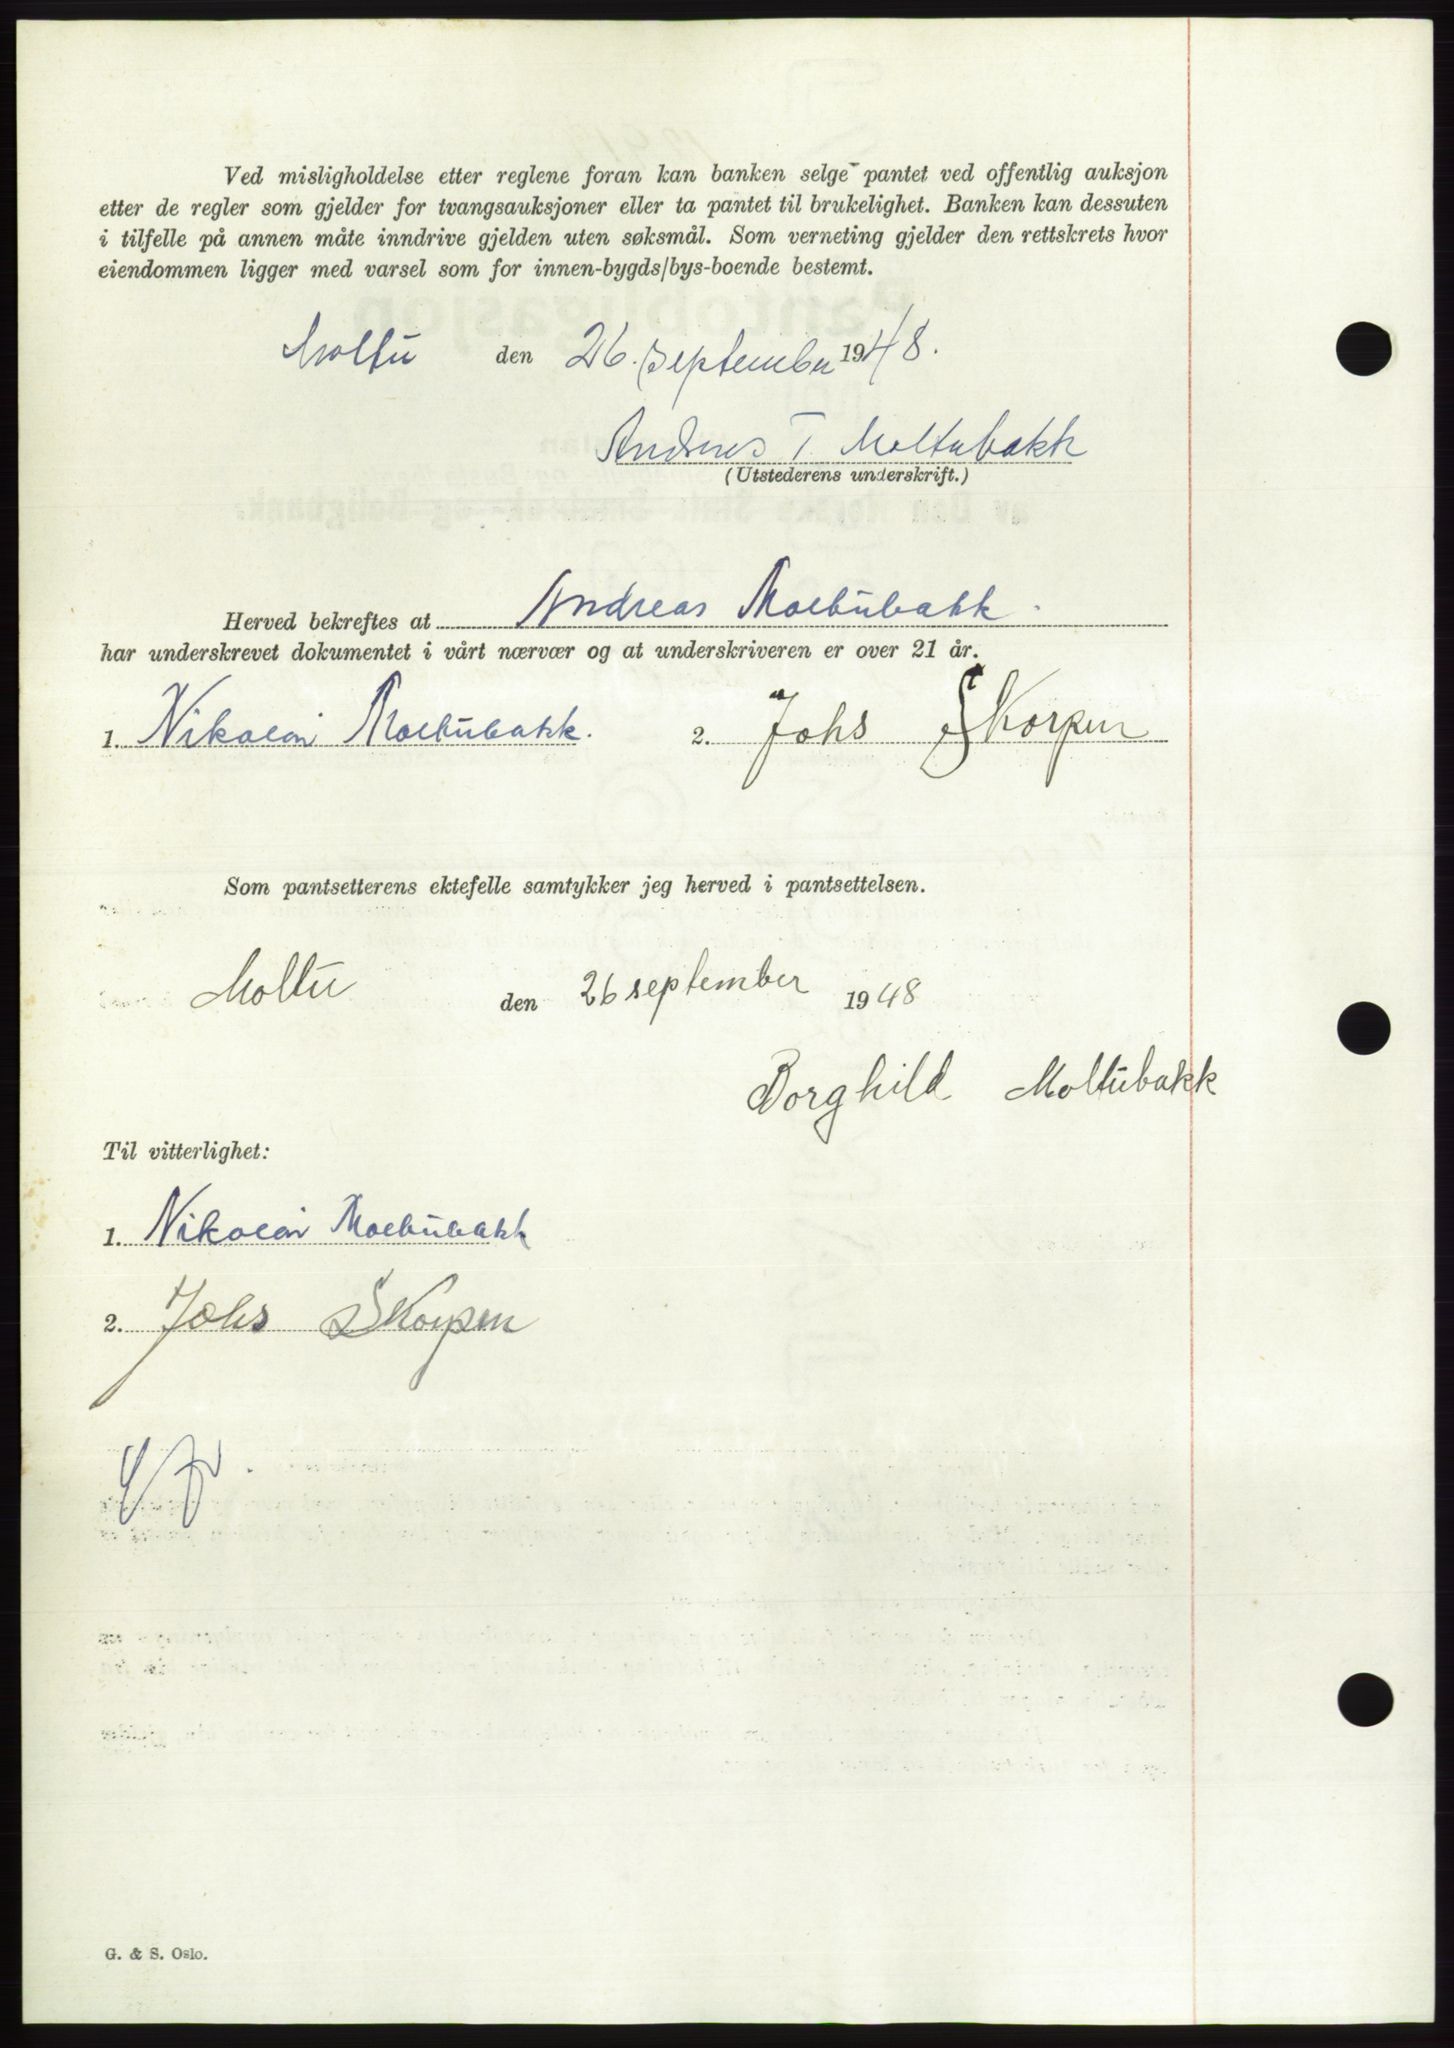 Ved misligholdelse etter reglene foran kan banken selge pantet ved offentlig auksjon
etter de regler som gjelder for tvangsauksjoner eller ta pantet til brukelighet. Banken kan dessuten
i tilfelle på annen måte inndrive gjelden uten søksmål. Som verneting gjelder den rettskrets hvor
eiendommen ligger med varsel som for innen-bygds/bys-boende bestemt.
Moltu den 26. september 1948.
Andreas T. Moltubakk
(Utstederens underskrift.)
Herved bekreftes at Andreas Moltubakk.
har underskrevet dokumentet i vårt nærvær og at underskriveren er over 21 år.
1. Nikolai Moltubakk. 2. Johs Skorpen
Som pantsetterens ektefelle samtykker jeg herved i pantsettelsen.
Moltu den 26 september 1948
Borghild Moltubakk
Til vitterlighet:
1. Nikolai Moltubakk
2. Johs Skorpen
G. & S. Oslo.